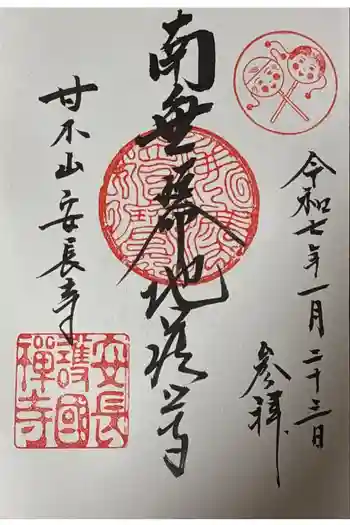 令和七年一月二十三日
参拝
南無地蔵尊
甘木山安長寺
安長
護國
禪寺